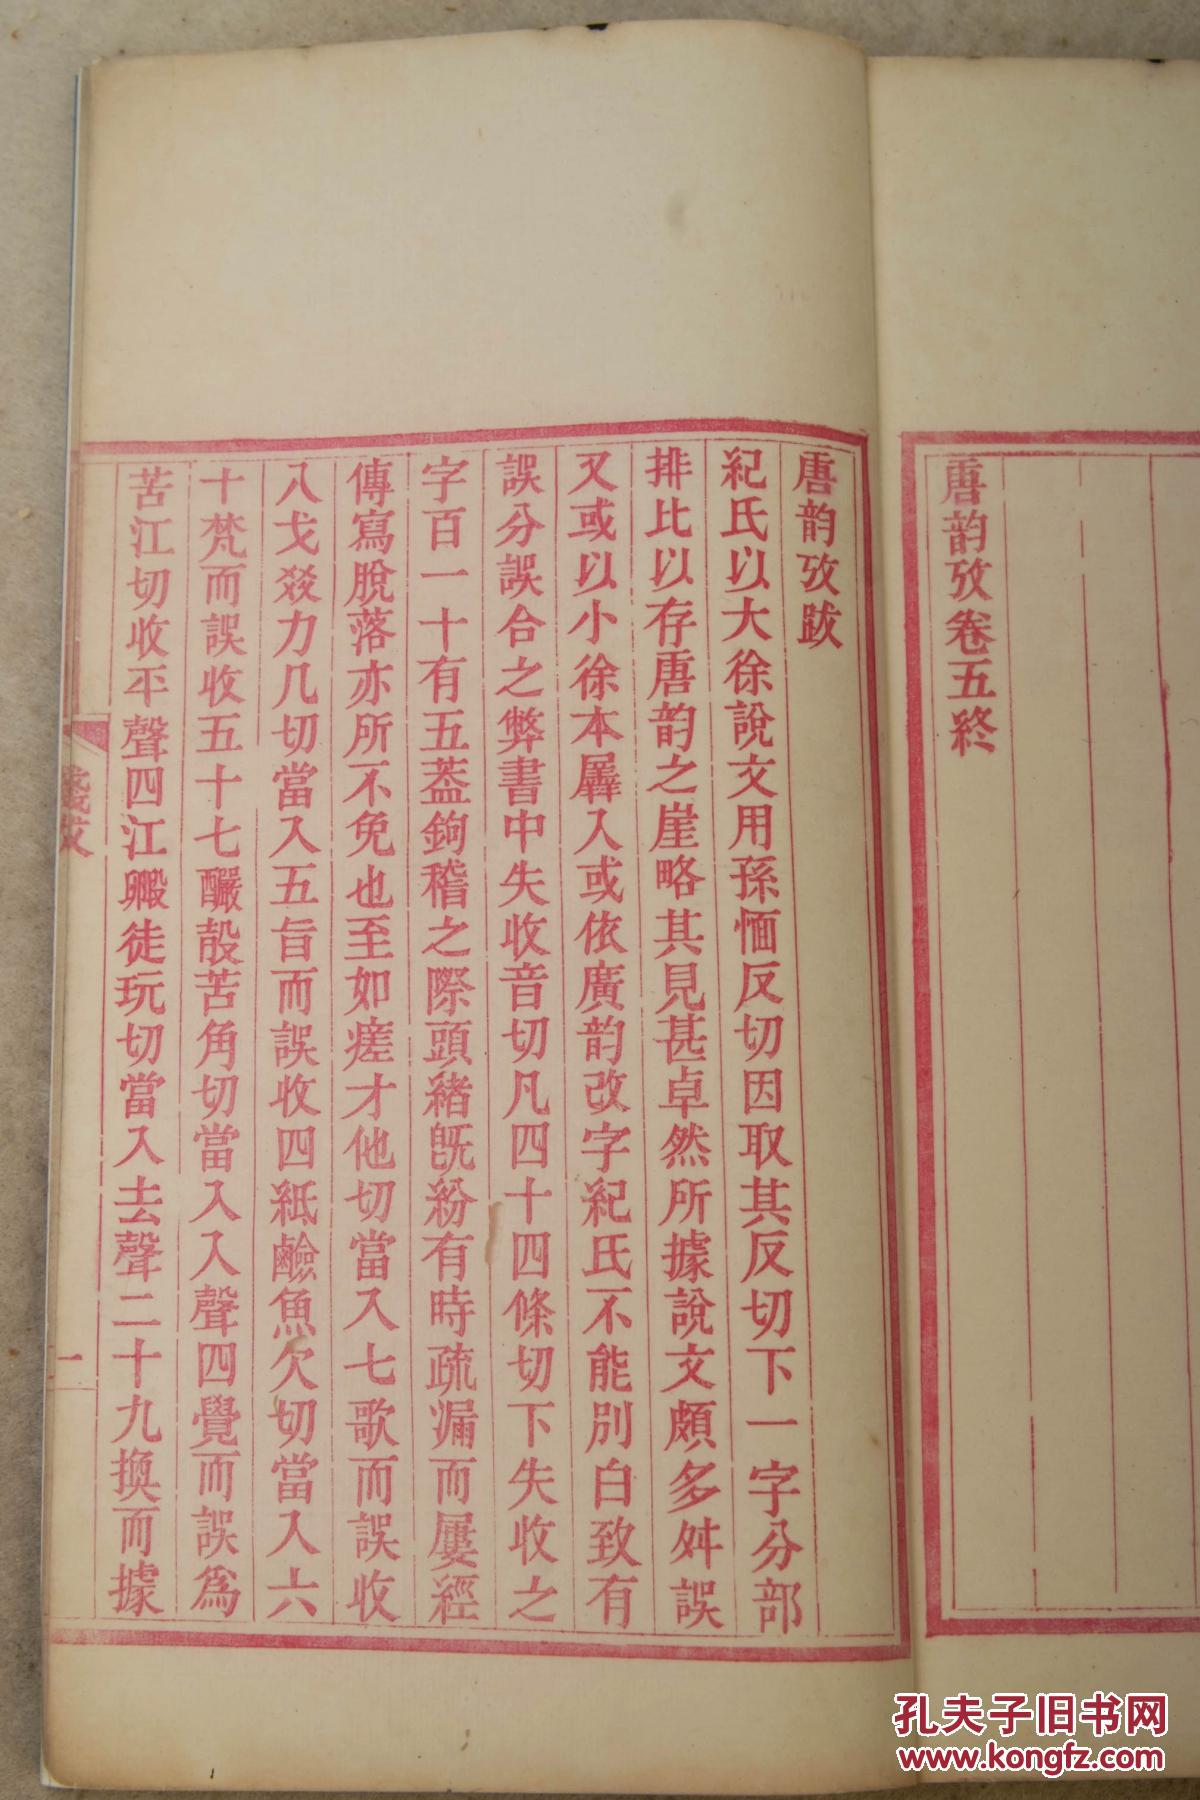 唐韵攷卷五終
唐韵攷跋
紀氏以大徐說文用孫愐反切因取其反切下一字分部
排比以存唐韵之崖略其見甚卓然所據說文頗多舛誤
又或以小徐本羼入或依廣韵改字紀氏不能別白致有
誤分誤合之弊書中失收音切凡四十四條切下失收之
字百一十有五葢鉤稽之際頭緒旣紛有時疏漏而屢經
傳寫脫落亦所不免也至如瘥才他切當入七歌而誤收
八戈㸚力几切當入五旨而誤收四紙鹼魚欠切當入六
十梵而誤收五十七釅㱿苦角切當入入聲四覺而誤爲
苦江切收平聲四江毈徒玩切當入去聲二十九換而據
一
孔夫子旧书网
www.kongfz.com